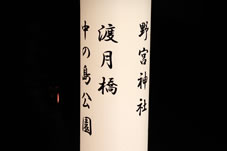 野宮神社
渡月橋
中の島公園